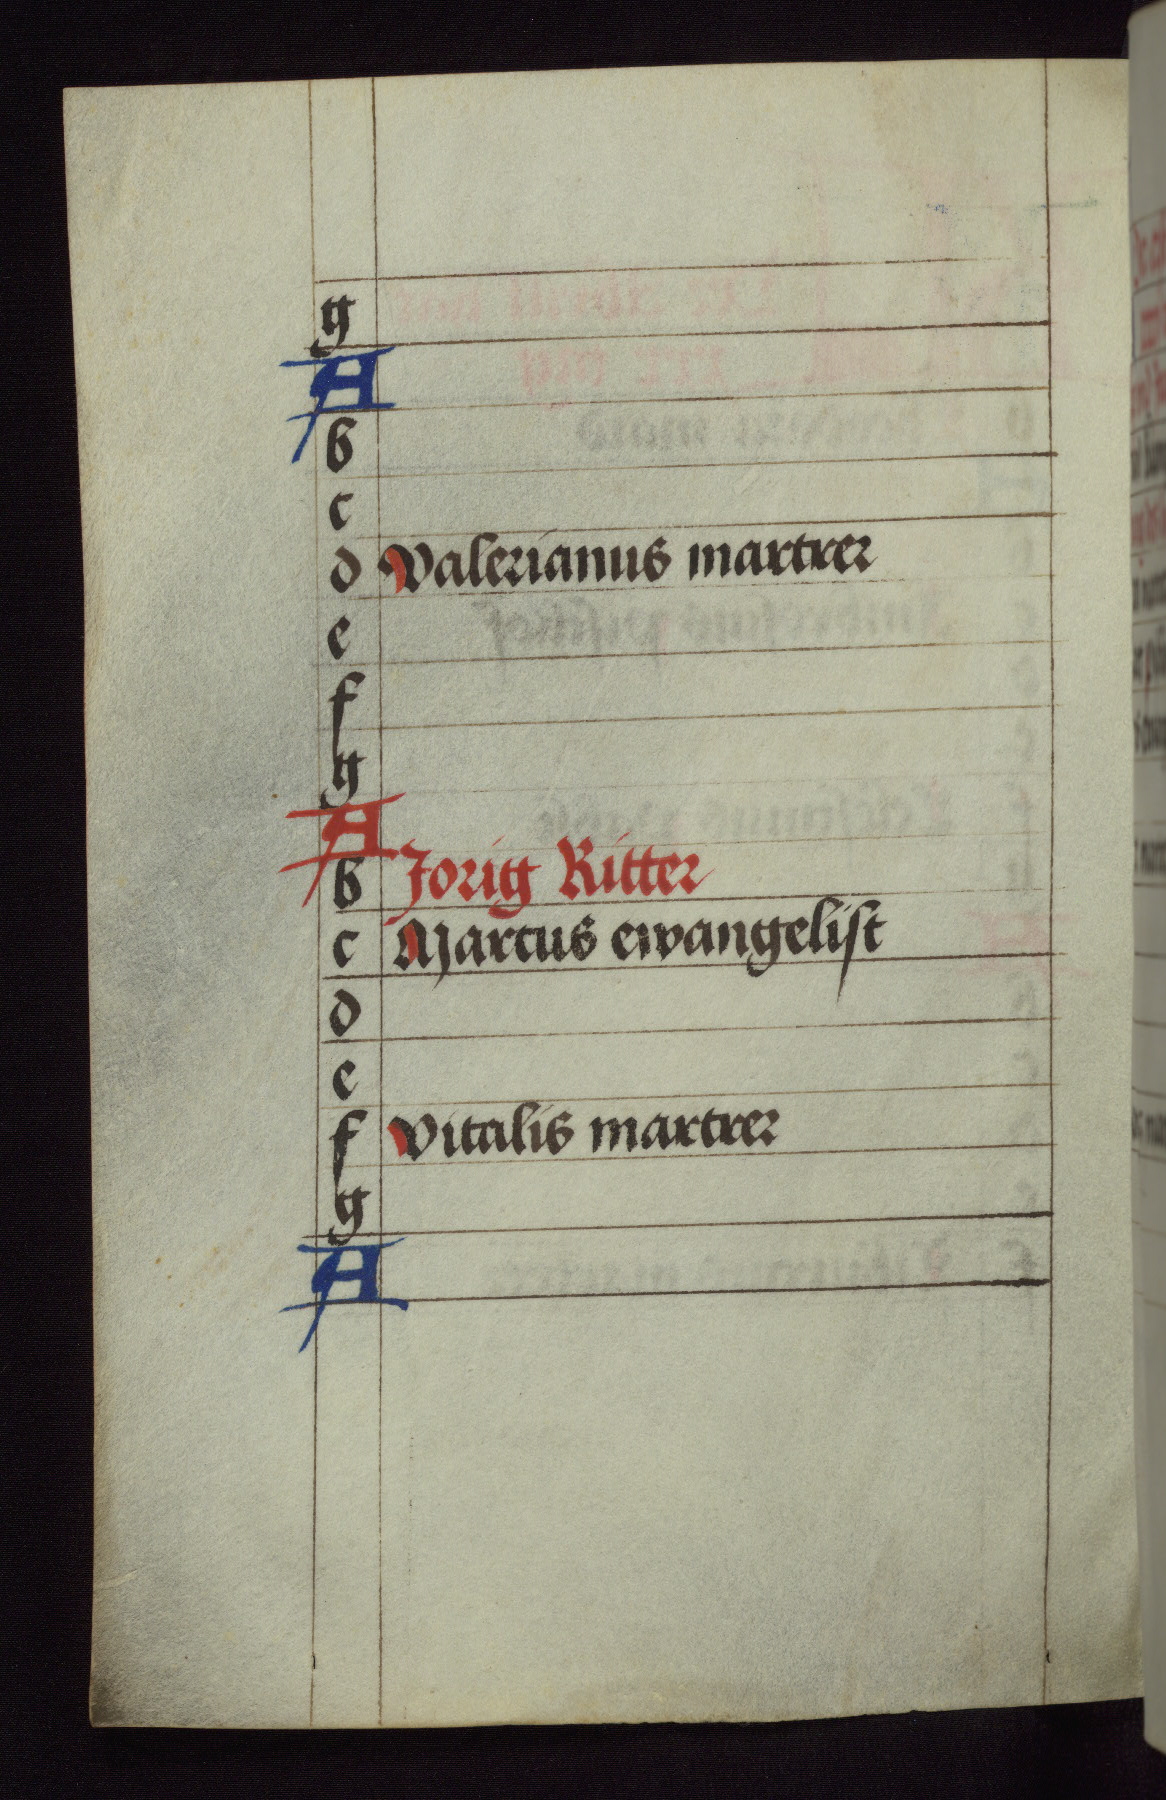 g
A
b
c
d Valerianus martrer
e
f
g
A
b Jorig Ritter
c Marcus ewangelist
d
e
f Vitalis martrer
g
A